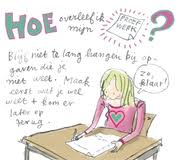 HOE overleef ik
mijn PROEF
WERK ?
Blijf niet te lang hangen bij op-
gaven die je
niet weet. Maak
eerst wat je wel
weet + kom er
later op
terug.
zo,
klaar!